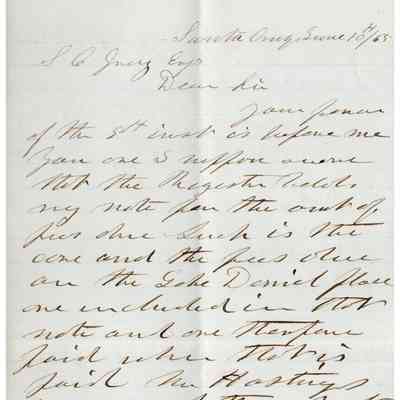 Santa Cruz June 13th/65
S C Esqr
Dear Sir
Your
of the 5th inst is before me
You are I suppose aware
that the Register holds
my note for the amt of
fees due Such is the
case and the fees due
on the Daniel place
are included in that
note and are therefore
paid when that is
paid Mr Hastings